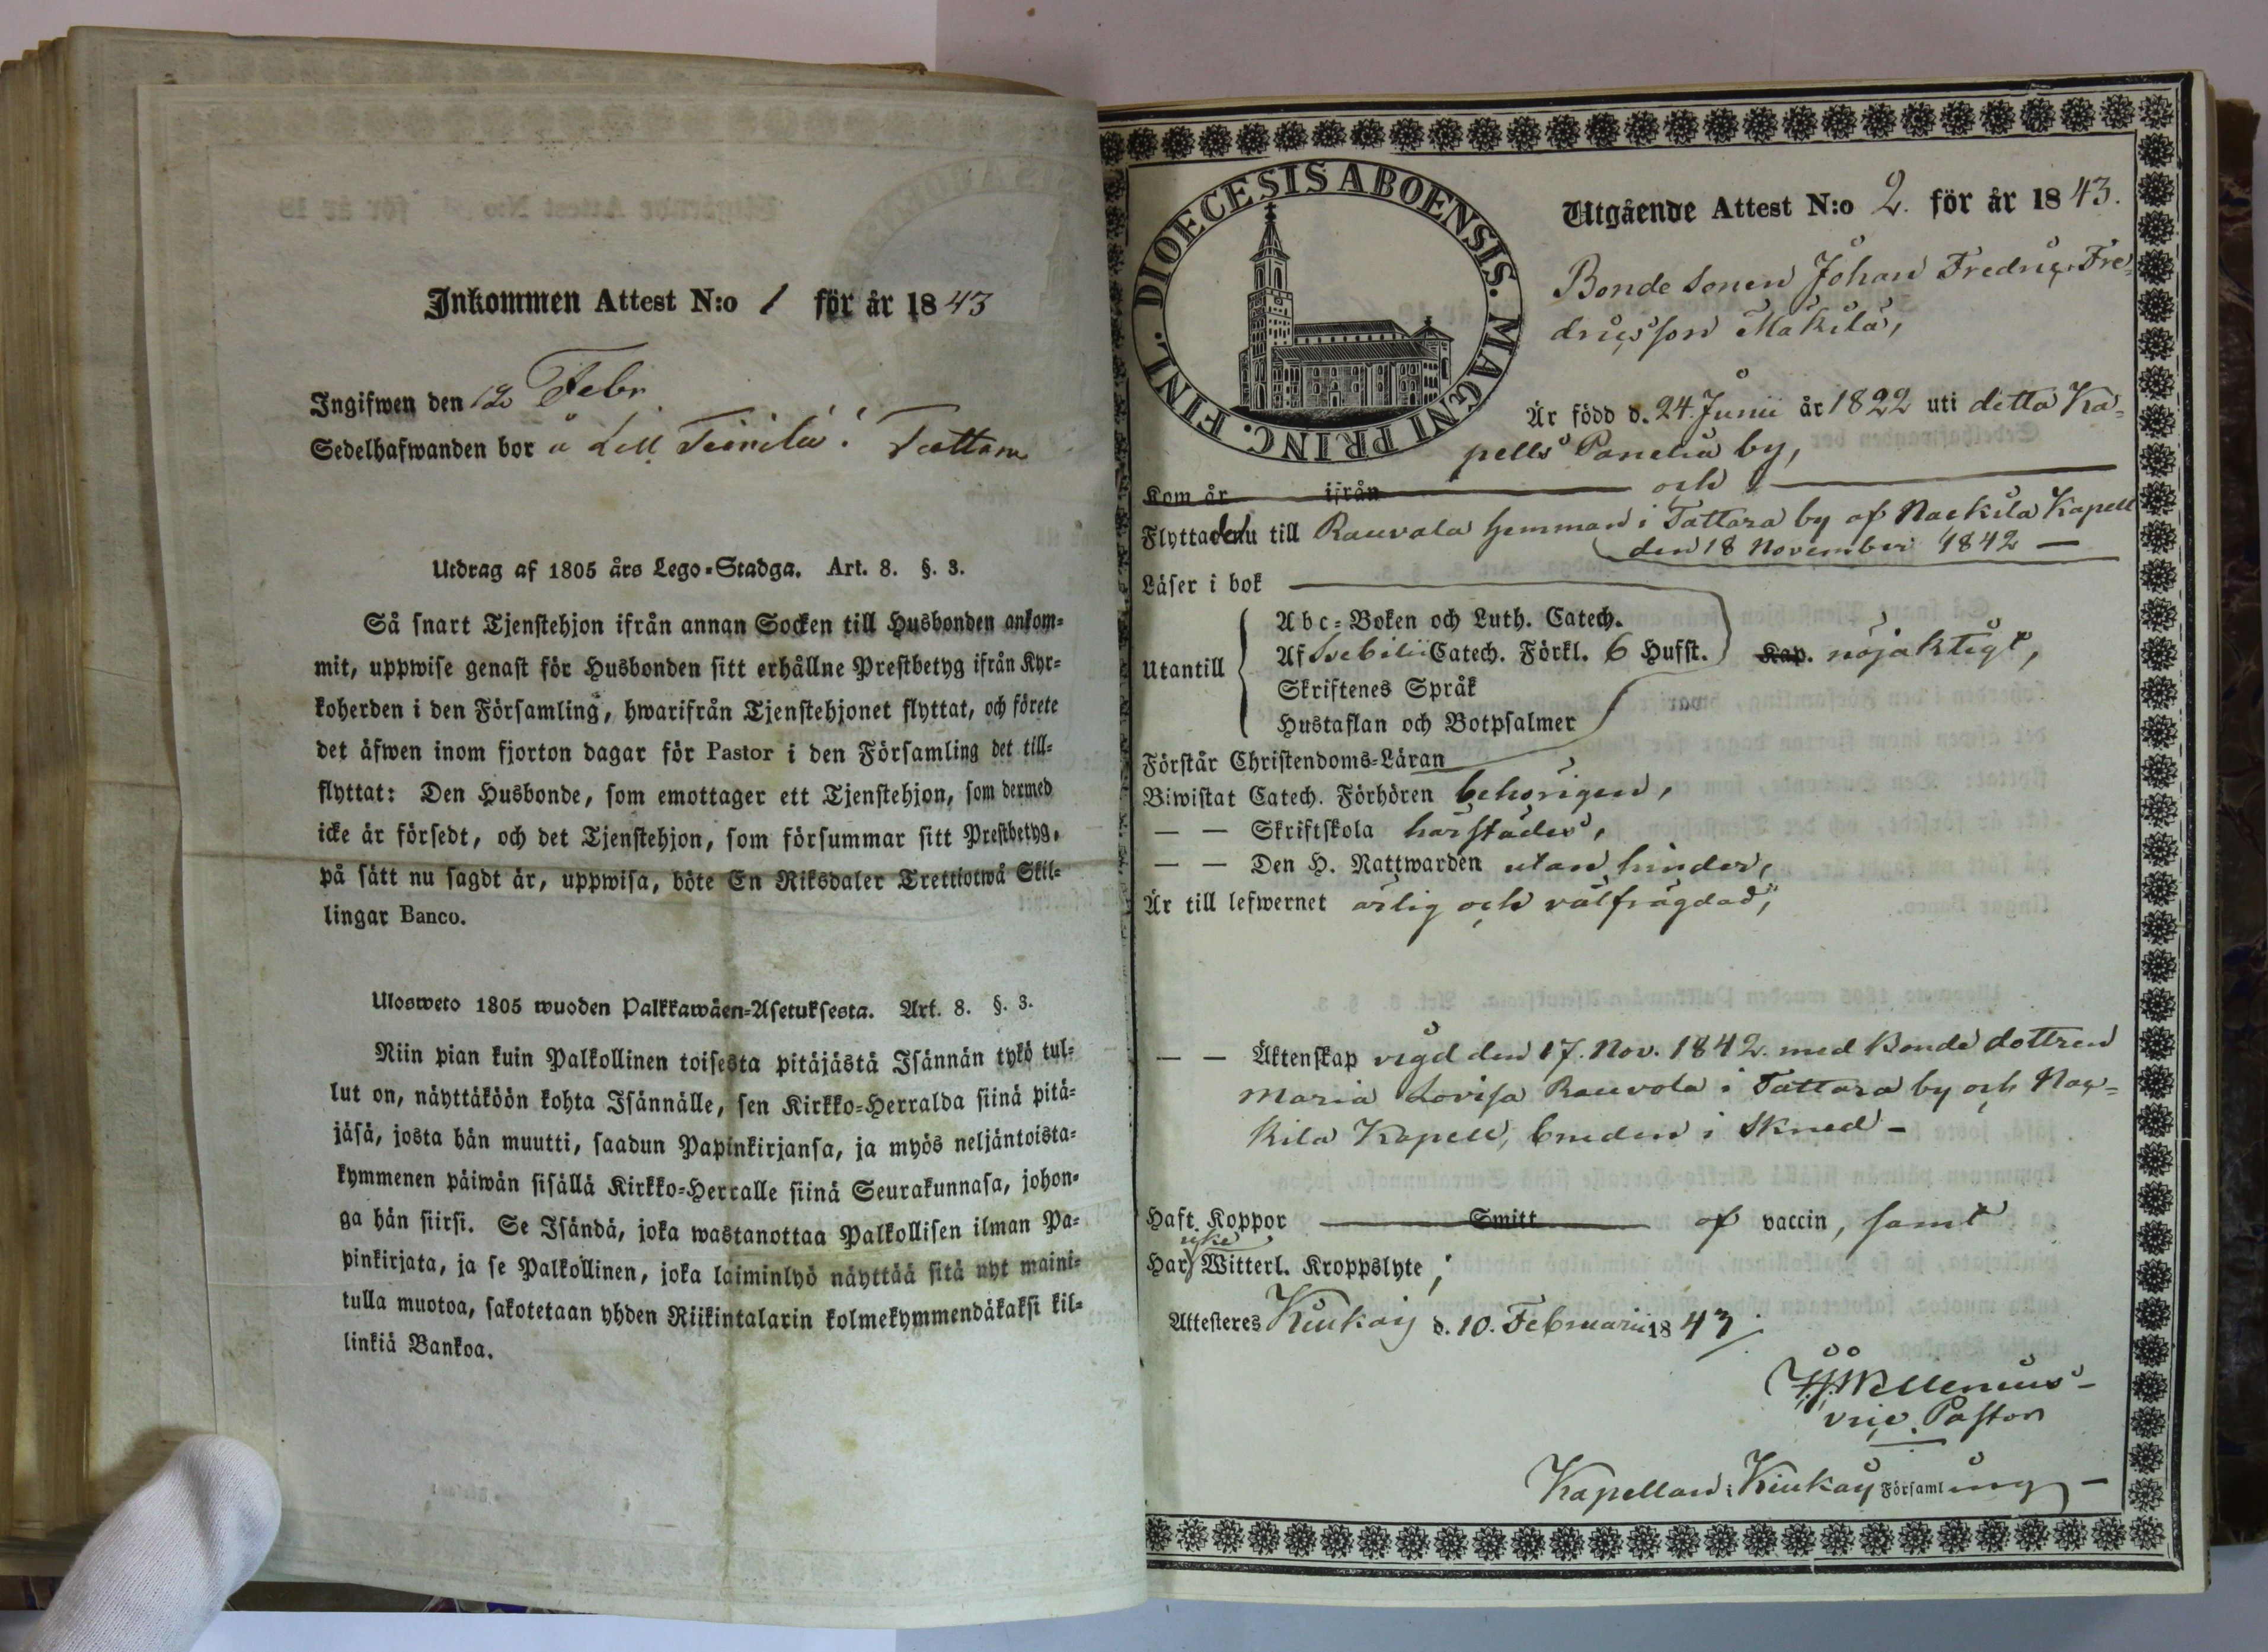 Inkommen Attest N:o 1 för år 1843
Ingifwen den 12 Febr
Sedelhafwanden bor å Lill Teinilä i Tattara
Utdrag af 1805 års Lego-Stadga. Art. 8. §. 3.
Så snart Tjenstehjon ifrån annan Socken till Husbonden ankom-
mit, uppwise genast för Husbonden sitt erhållne Prestbetyg ifrån Kyr-
koherden i den Församling, hwarifrån Tjenstehjonet flyttat, och förete
det äfwen inom fjorton dagar för Pastor i den Församling det till-
flyttat: Den Husbonde, som emottager ett Tjenstehjon, som dermed
icke är försedt, och det Tjenstehjon, som försummar sitt Prestbetyg,
på sätt nu sagdt är, uppwisa, böte En Riksdaler Trettiotwå Skil-
lingar Banco.
Ulosweto 1805 wuoden Palkkawäen-Asetuksesta. Art. 8. §. 3.
Niin pian kuin Palkollinen toisesta pitäjästä Isännän tykö tul-
lut on, näyttäköön kohta Isännälle, sen Kirkko-Herralda siinä pitä-
jäsä, josta hän muutti, saadun Papinkirjansa, ja myös neljäntoista-
kymmenen päiwän sisällä Kirkko-Herralle siinä Seurakunnasa, johon-
ga hän siirsi. Se Isändä, joka wastanottaa Palkollisen ilman Pa-
pinkirjata, ja se Palkollinen, joka laiminlyö näyttää sitä nyt maini-
tulla muotoa, sakotetaan yhden Riikintalarin kolmekymmendäkaksi kil-
linkiä Bankoa.
DIOECESIS ABOENSIS. MAGNI PRINC. FINL.
Utgående Attest N:o 2. för år 1843.
Bonde sonen Johan Fredric Fre-
dricsson Mäkilä,
Är född d. 24. Junii år 1822 uti detta Ka-
pells Panelia by,
Kom år ifrån och
Flyttade nu till Rauvala hemman i Tattara by af Nackila Kapell
den 18 November 1842 —
Läser i bok
Utantill
Abc-Boken och Luth. Catech.
Af Svebilii Catech. Förkl. 6 Hufst. Kap. nöjaktigt,
Skriftenes Språk
Hustaflan och Botpsalmer
Förstår Christendoms-Läran
Biwistat Catech. Förhören behörigen,
— — Skriftskola härstädes,
— — Den H. Nattwarden utan hinder,
Är till lefwernet ärlig och välfrägdad,
— — Äktenskap vigd den 17. Nov. 1842. med Bonde dottren
Maria Lovisa Rauvola i Tattara by och Nac-
kila Kapell, bruden i Skrud -
Haft Koppor Smitt af vaccin, samt
Har icke Witterl. Kroppslyte;
Attesteres Kiukais d. 10. Februarii 1843
vice Pastor
Kapellan i Kiukais Församling -